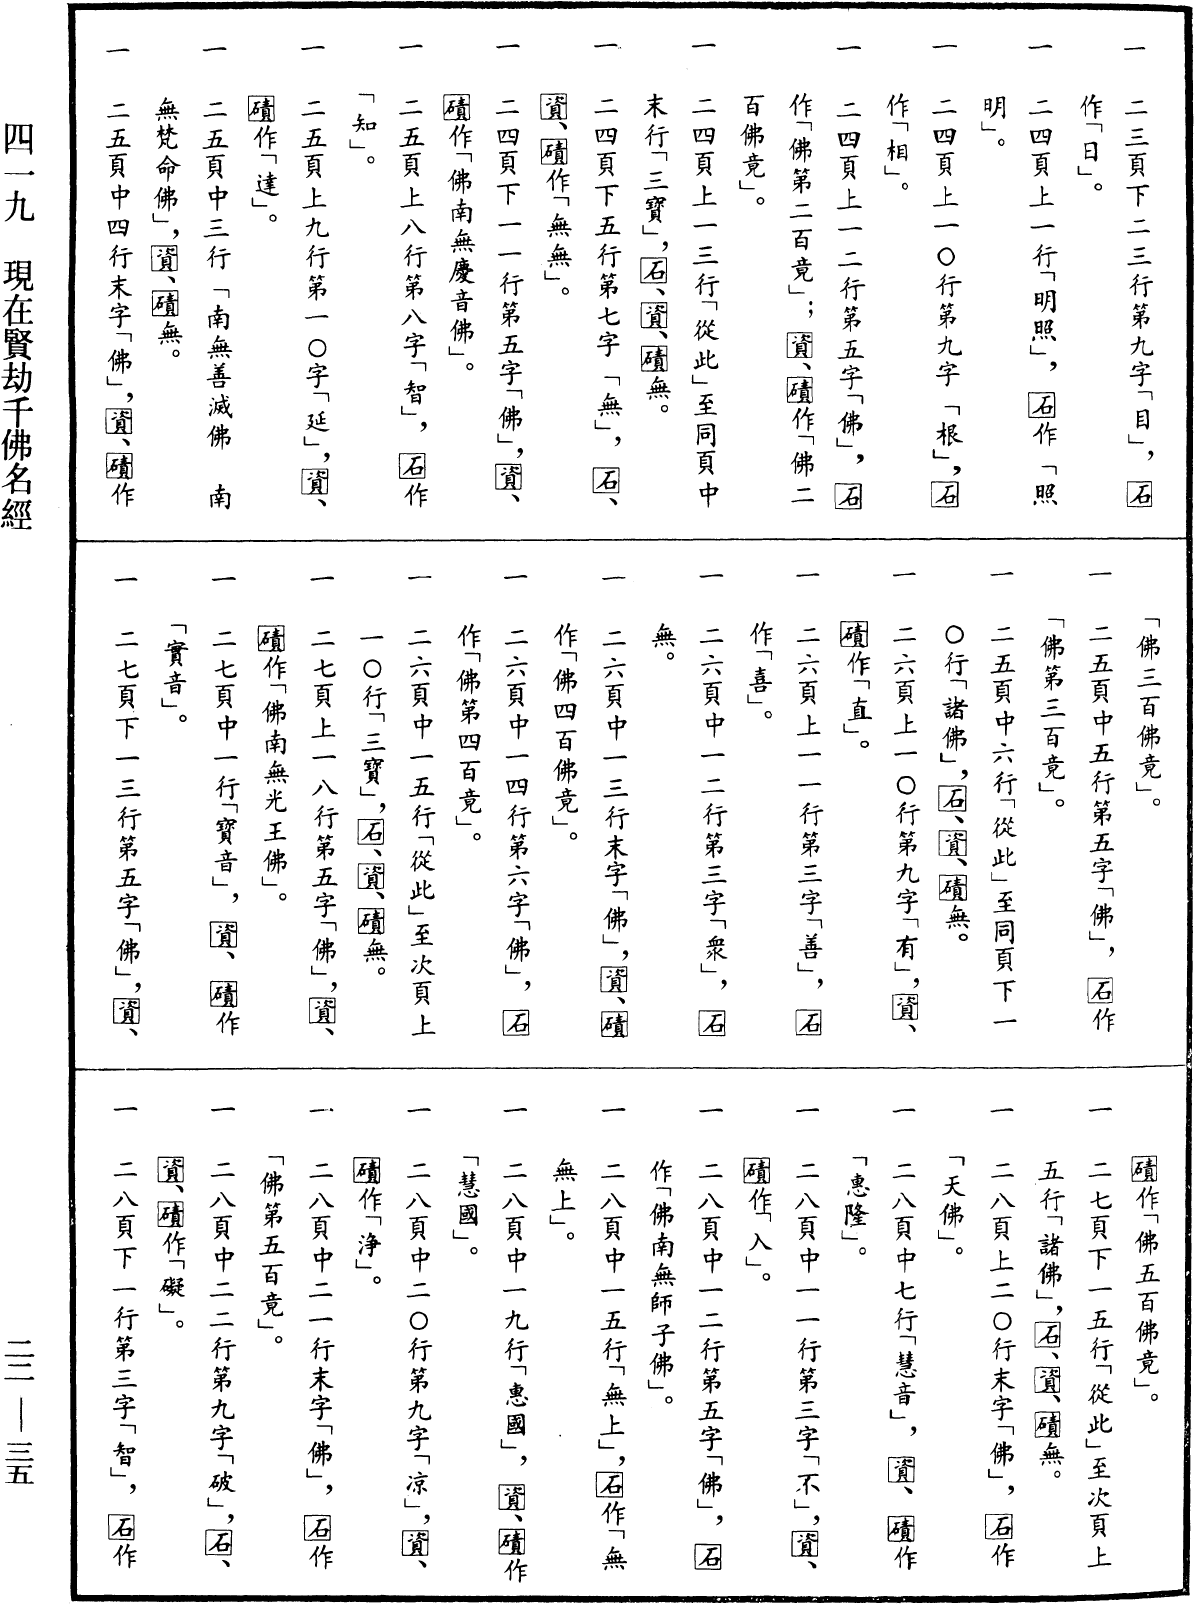 一　二三頁下二三行第九字「目」，石
作「日」。
一　二四頁上一行「明照」，石作「照
明」。
一　二四頁上一〇行第九字「根」，石
作「相」。
一　二四頁上一二行第五字「佛」，石
作「佛第二百竟」；資、磧作「佛二
百佛竟」。
一　二四頁上一三行「從此」至同頁中
末行「三寶」，石、資、磧無。
一　二四頁下五行第七字「無」，石、
資、磧作「無無」。
一　二四頁下一一行第五字「佛」，資、
磧作「佛南無慶音佛」。
一　二五頁上八行第八字「智」，石作
「知」。
一　二五頁上九行第一〇字「延」，資、
磧作「達」。
一　二五頁中三行「南無善滅佛　南
無梵命佛」，資、磧無。
一　二五頁中四行末字「佛」，資、磧作
「佛三百佛竟」。
一　二五頁中五行第五字「佛」，石作
「佛第三百竟」。
一　二五頁中六行「從此」至同頁下一
〇行「諸佛」，石、資、磧無。
一　二六頁上一〇行第九字「有」，資、
磧作「直」。
一　二六頁上一一行第三字「善」，石
作「喜」。
一　二六頁中一二行第三字「衆」，石
無。
一　二六頁中一三行末字「佛」，資、磧
作「佛四百佛竟」。
一　二六頁中一四行第六字「佛」，石
作「佛第四百竟」。
一　二六頁中一五行「從此」至次頁上
一〇行「三寶」，石、資、磧無。
一　二七頁上一八行第五字「佛」，資、
磧作「佛南無光王佛」。
一　二七頁中一行「寶音」，資、磧作
「實音」。
一　二七頁下一三行第五字「佛」，資、
磧作「佛五百佛竟」。
一　二七頁下一五行「從此」至次頁上
五行「諸佛」，石、資、磧無。
一　二八頁上二〇行末字「佛」，石作
「天佛」。
一　二八頁中七行「慧音」，資、磧作
「惠隆」。
一　二八頁中一一行第三字「不」，資、
磧作「入」。
一　二八頁中一二行第五字「佛」，石
作「佛南無師子佛」。
一　二八頁中一五行「無上」，石作「無
無上」。
一　二八頁中一九行「惠國」，資、磧作
「慧國」。
一　二八頁中二〇行第九字「凉」，資、
磧作「淨」。
一　二八頁中二一行末字「佛」，石作
「佛第五百竟」。
一　二八頁中二二行第九字「破」，石、
資、磧作「礙」。
一　二八頁下一行第三字「智」，石作
四一九　現在賢劫千佛名經
二二—三五